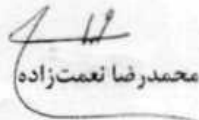 محمدرضا نعمت‌زاده